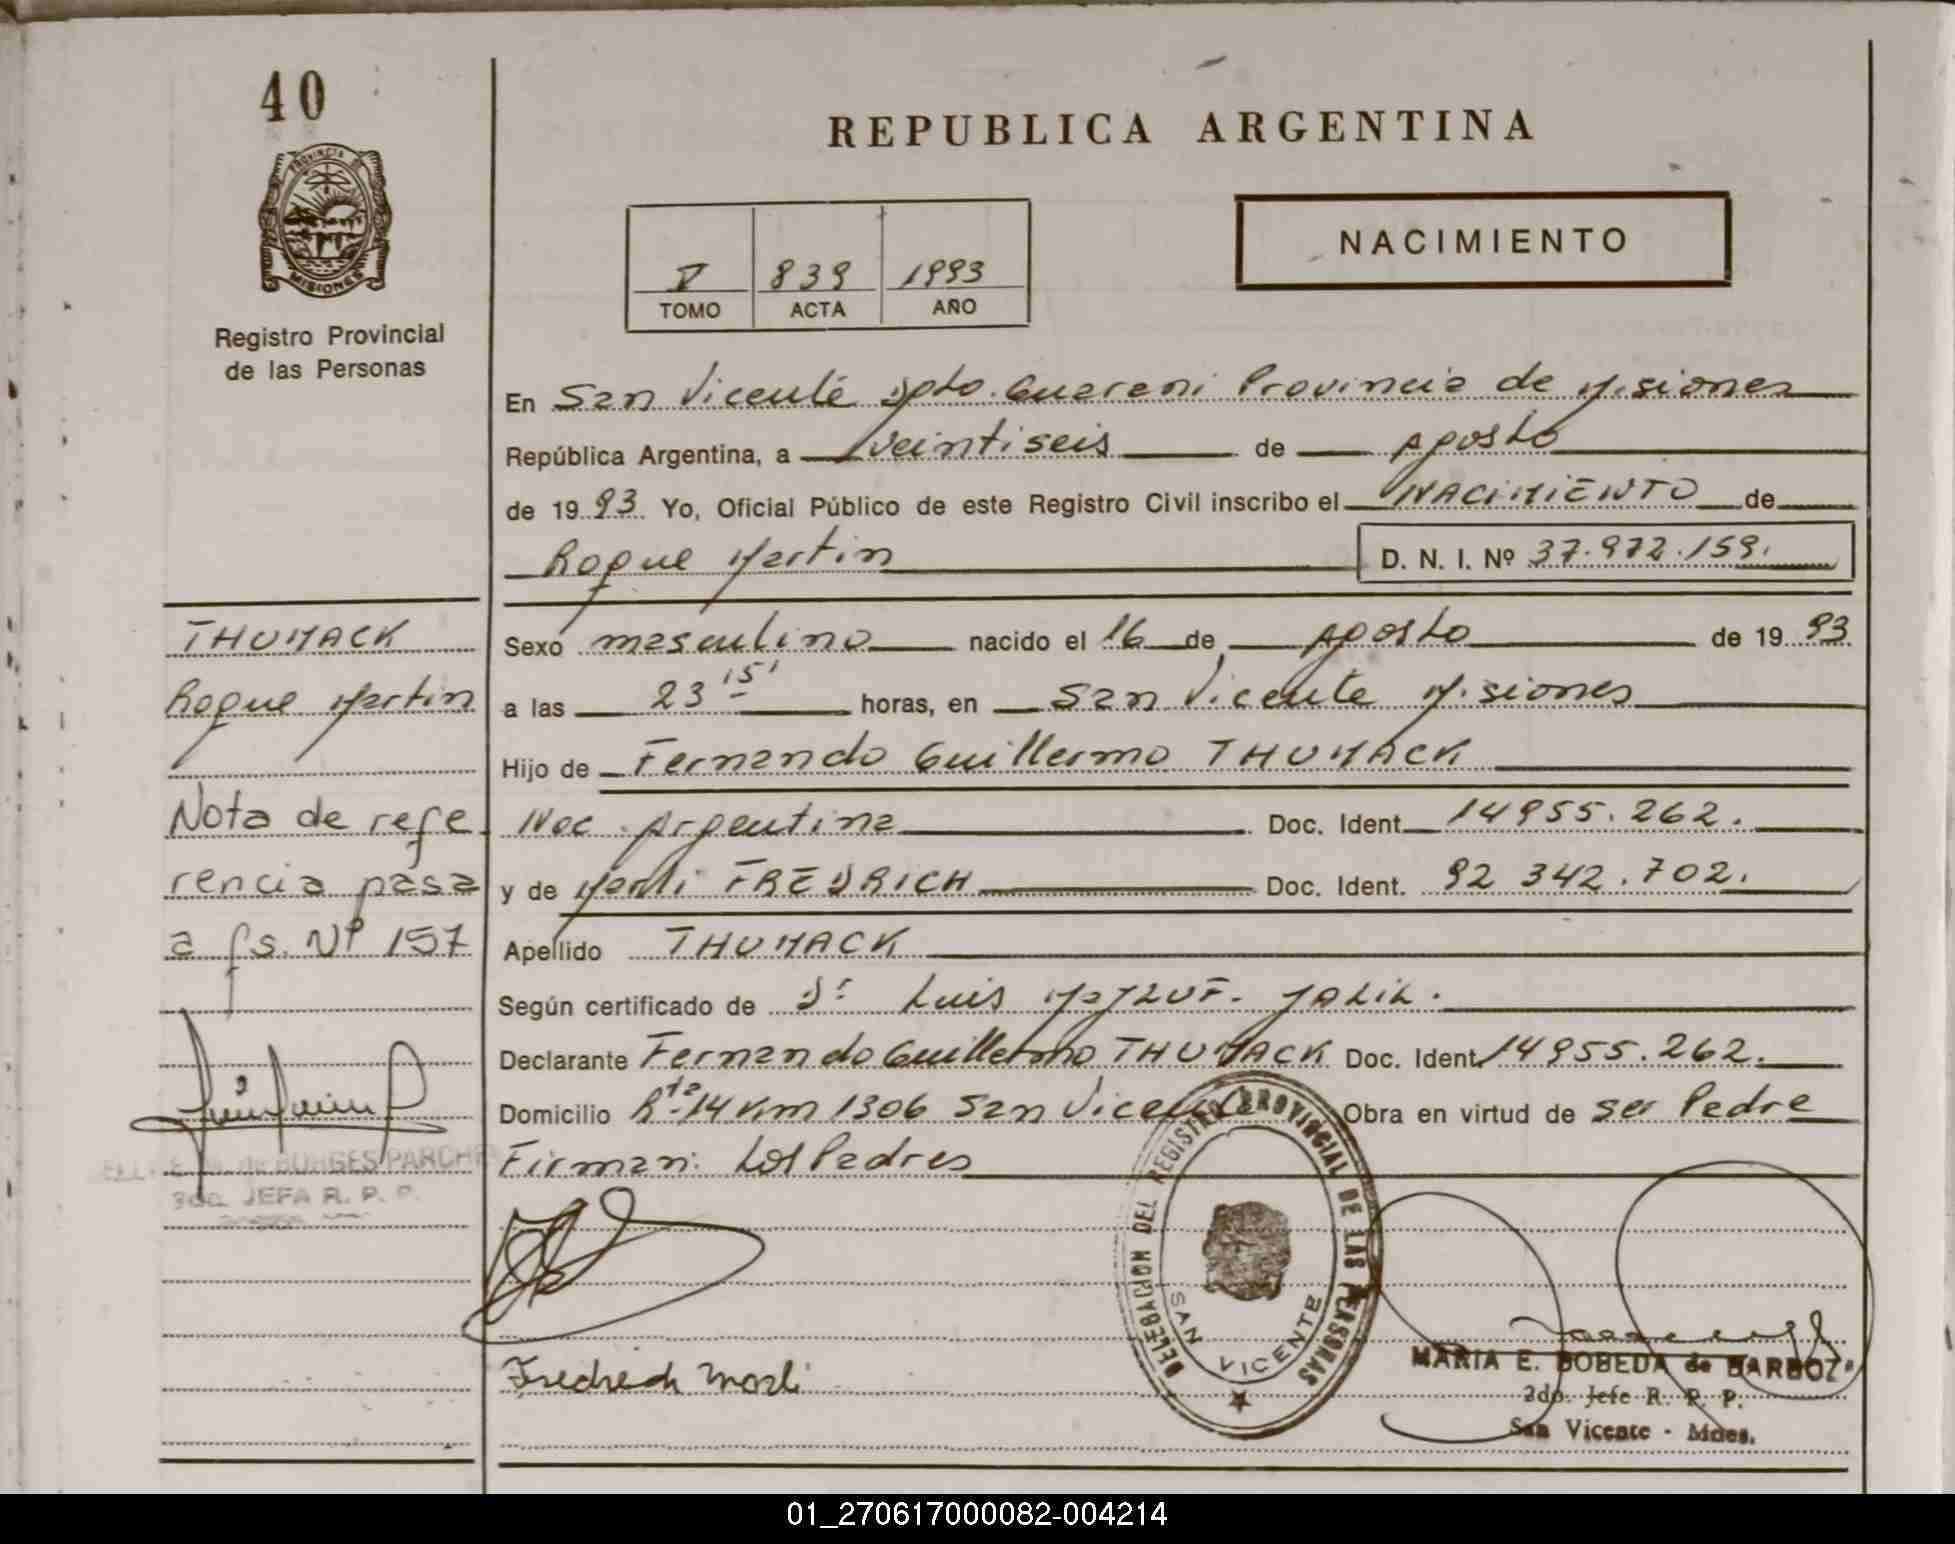 40
REPUBLICA ARGENTINA
PROVINCIA DE
MISIONES
Registro Provincial
de las Personas
V 839 1993
TOMO ACTA AÑO
NACIMIENTO
En San Vicente Dpto. Guarani Provincia de Misiones
República Argentina, a veintiseis de Agosto
de 1993 Yo, Oficial Público de este Registro Civil inscribo el NACIMIENTO de
Roque Martin D. N. I. Nº 37.972.159.
THUMACK
Roque Martin
Sexo masculino nacido el 16 de Agosto de 1993
a las 23 15' horas, en San Vicente Misiones
Hijo de Fernando Guillermo THUMACK
Nac. Argentina Doc. Ident. 14955.262.
y de Marli FREDRICH Doc. Ident. 92 342.702.
Apellido THUMACK
Nota de refe
rencia pasa
a fs. Nº 157
Según certificado de Dr Luis JALIL.
Declarante Fernando Guillermo THUMACK Doc. Ident. 14955.262.
Domicilio Rta 14 Km 1306 San Vicente Obra en virtud de ser Padre
Firman: Los Padres
de BORGES PARCHE
3da. JEFA R. P. P.
DELEGACION DEL REGISTRO PROVINCIAL DE LAS PERSONAS
SAN VICENTE
Fredrich Marli
MARIA E. BOBEDA de BARBOZA
2do. Jefe R. P. P.
San Vicente - Mnes.
01_270617000082-004214